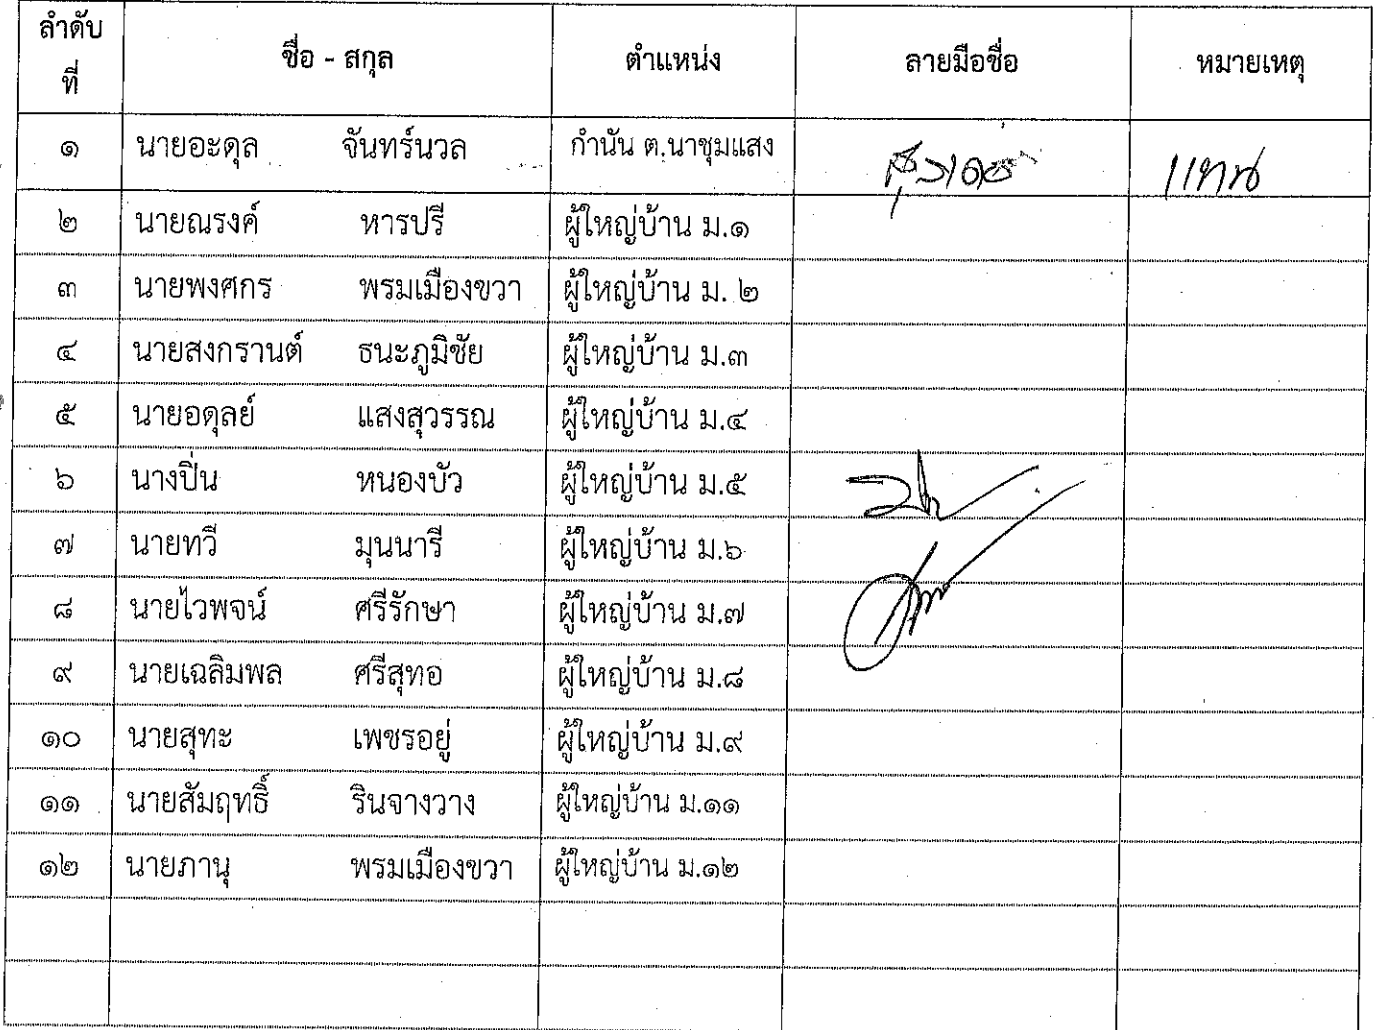 ลำดับที่ ชื่อ - สกุล ตำแหน่ง ลายมือชื่อ หมายเหตุ
๑ นายอะดุล จันทร์นวล กำนัน ต.นาชุมแสง แทน
๒ นายณรงค์ หารปรี ผู้ใหญ่บ้าน ม.๑
๓ นายพงศกร พรมเมืองขวา ผู้ใหญ่บ้าน ม. ๒
๔ นายสงกรานต์ ธนะภูมิชัย ผู้ใหญ่บ้าน ม.๓
๕ นายอดุลย์ แสงสุวรรณ ผู้ใหญ่บ้าน ม.๔
๖ นางปิ่น หนองบัว ผู้ใหญ่บ้าน ม.๕
๗ นายทวี มุนนารี ผู้ใหญ่บ้าน ม.๖
๘ นายไวพจน์ ศรีรักษา ผู้ใหญ่บ้าน ม.๗
๙ นายเฉลิมพล ศรีสุทอ ผู้ใหญ่บ้าน ม.๘
๑๐ นายสุทะ เพชรอยู่ ผู้ใหญ่บ้าน ม.๙
๑๑ นายสัมฤทธิ์ รินจางวาง ผู้ใหญ่บ้าน ม.๑๑
๑๒ นายภานุ พรมเมืองขวา ผู้ใหญ่บ้าน ม.๑๒